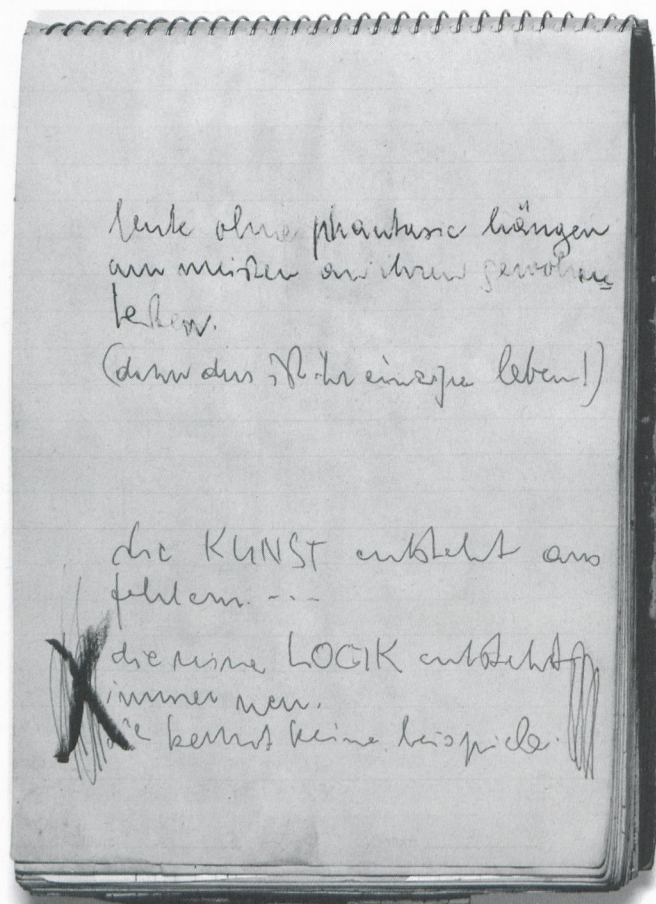 leute ohne phantasie hängen
am meisten an ihrem gewohnten
leben.
(denn das ist ihr einziges leben!)
die KUNST entsteht aus
fehlern. ---
die reine LOGIK entsteht
immer neu.
sie kennt keine beispiele.